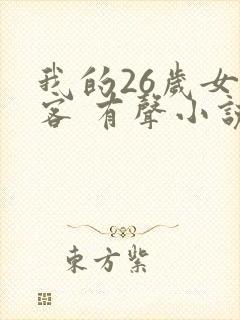 我的26歲女
客 有聲小說
東方紫